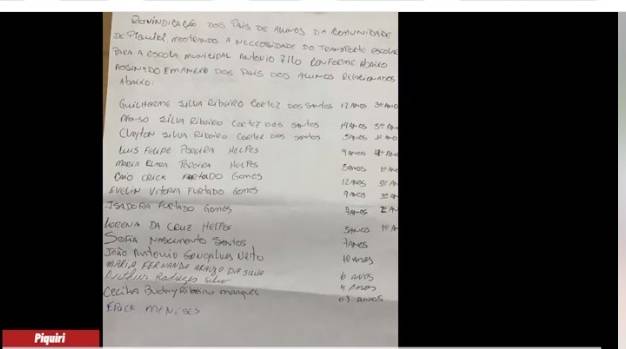 Reivindicação dos Pais de alunos da comunidade
de Piquiri, mostrando a necessidade do Transporte escolar
Para a escola municipal Antonio Filo conforme abaixo
dos Pais dos alunos relacionados
Abaixo:
Guilherme Silva Ribeiro Cortez dos Santos 12 Anos 5º Ano
Afonso Silva Ribeiro Cortez dos Santos 14 Anos 5º An
Clayton Silva Ribeiro Cortez dos Santos 5 Anos
Luis Felipe Pereira Helpes 9 Anos 4º An
Maria Pereira Helpes 8 Anos
Caio Erick Furtado Gomes 12 Anos
Evelin Vitoria Furtado Gomes 9 Anos
Isadora Furtado Gomes 9 Anos
Lorena da Cruz Helpes 5 Anos
Sofia Nascimento Santos 7 Anos
João Antonio Gonçalves Neto 10 Anos
Maria Fernanda Araujo da Silva
Rodrigues Silva 6 Anos
Cecilia Ribeiro Marques 4 Anos
Erick Menises 03 Anos
Piquiri